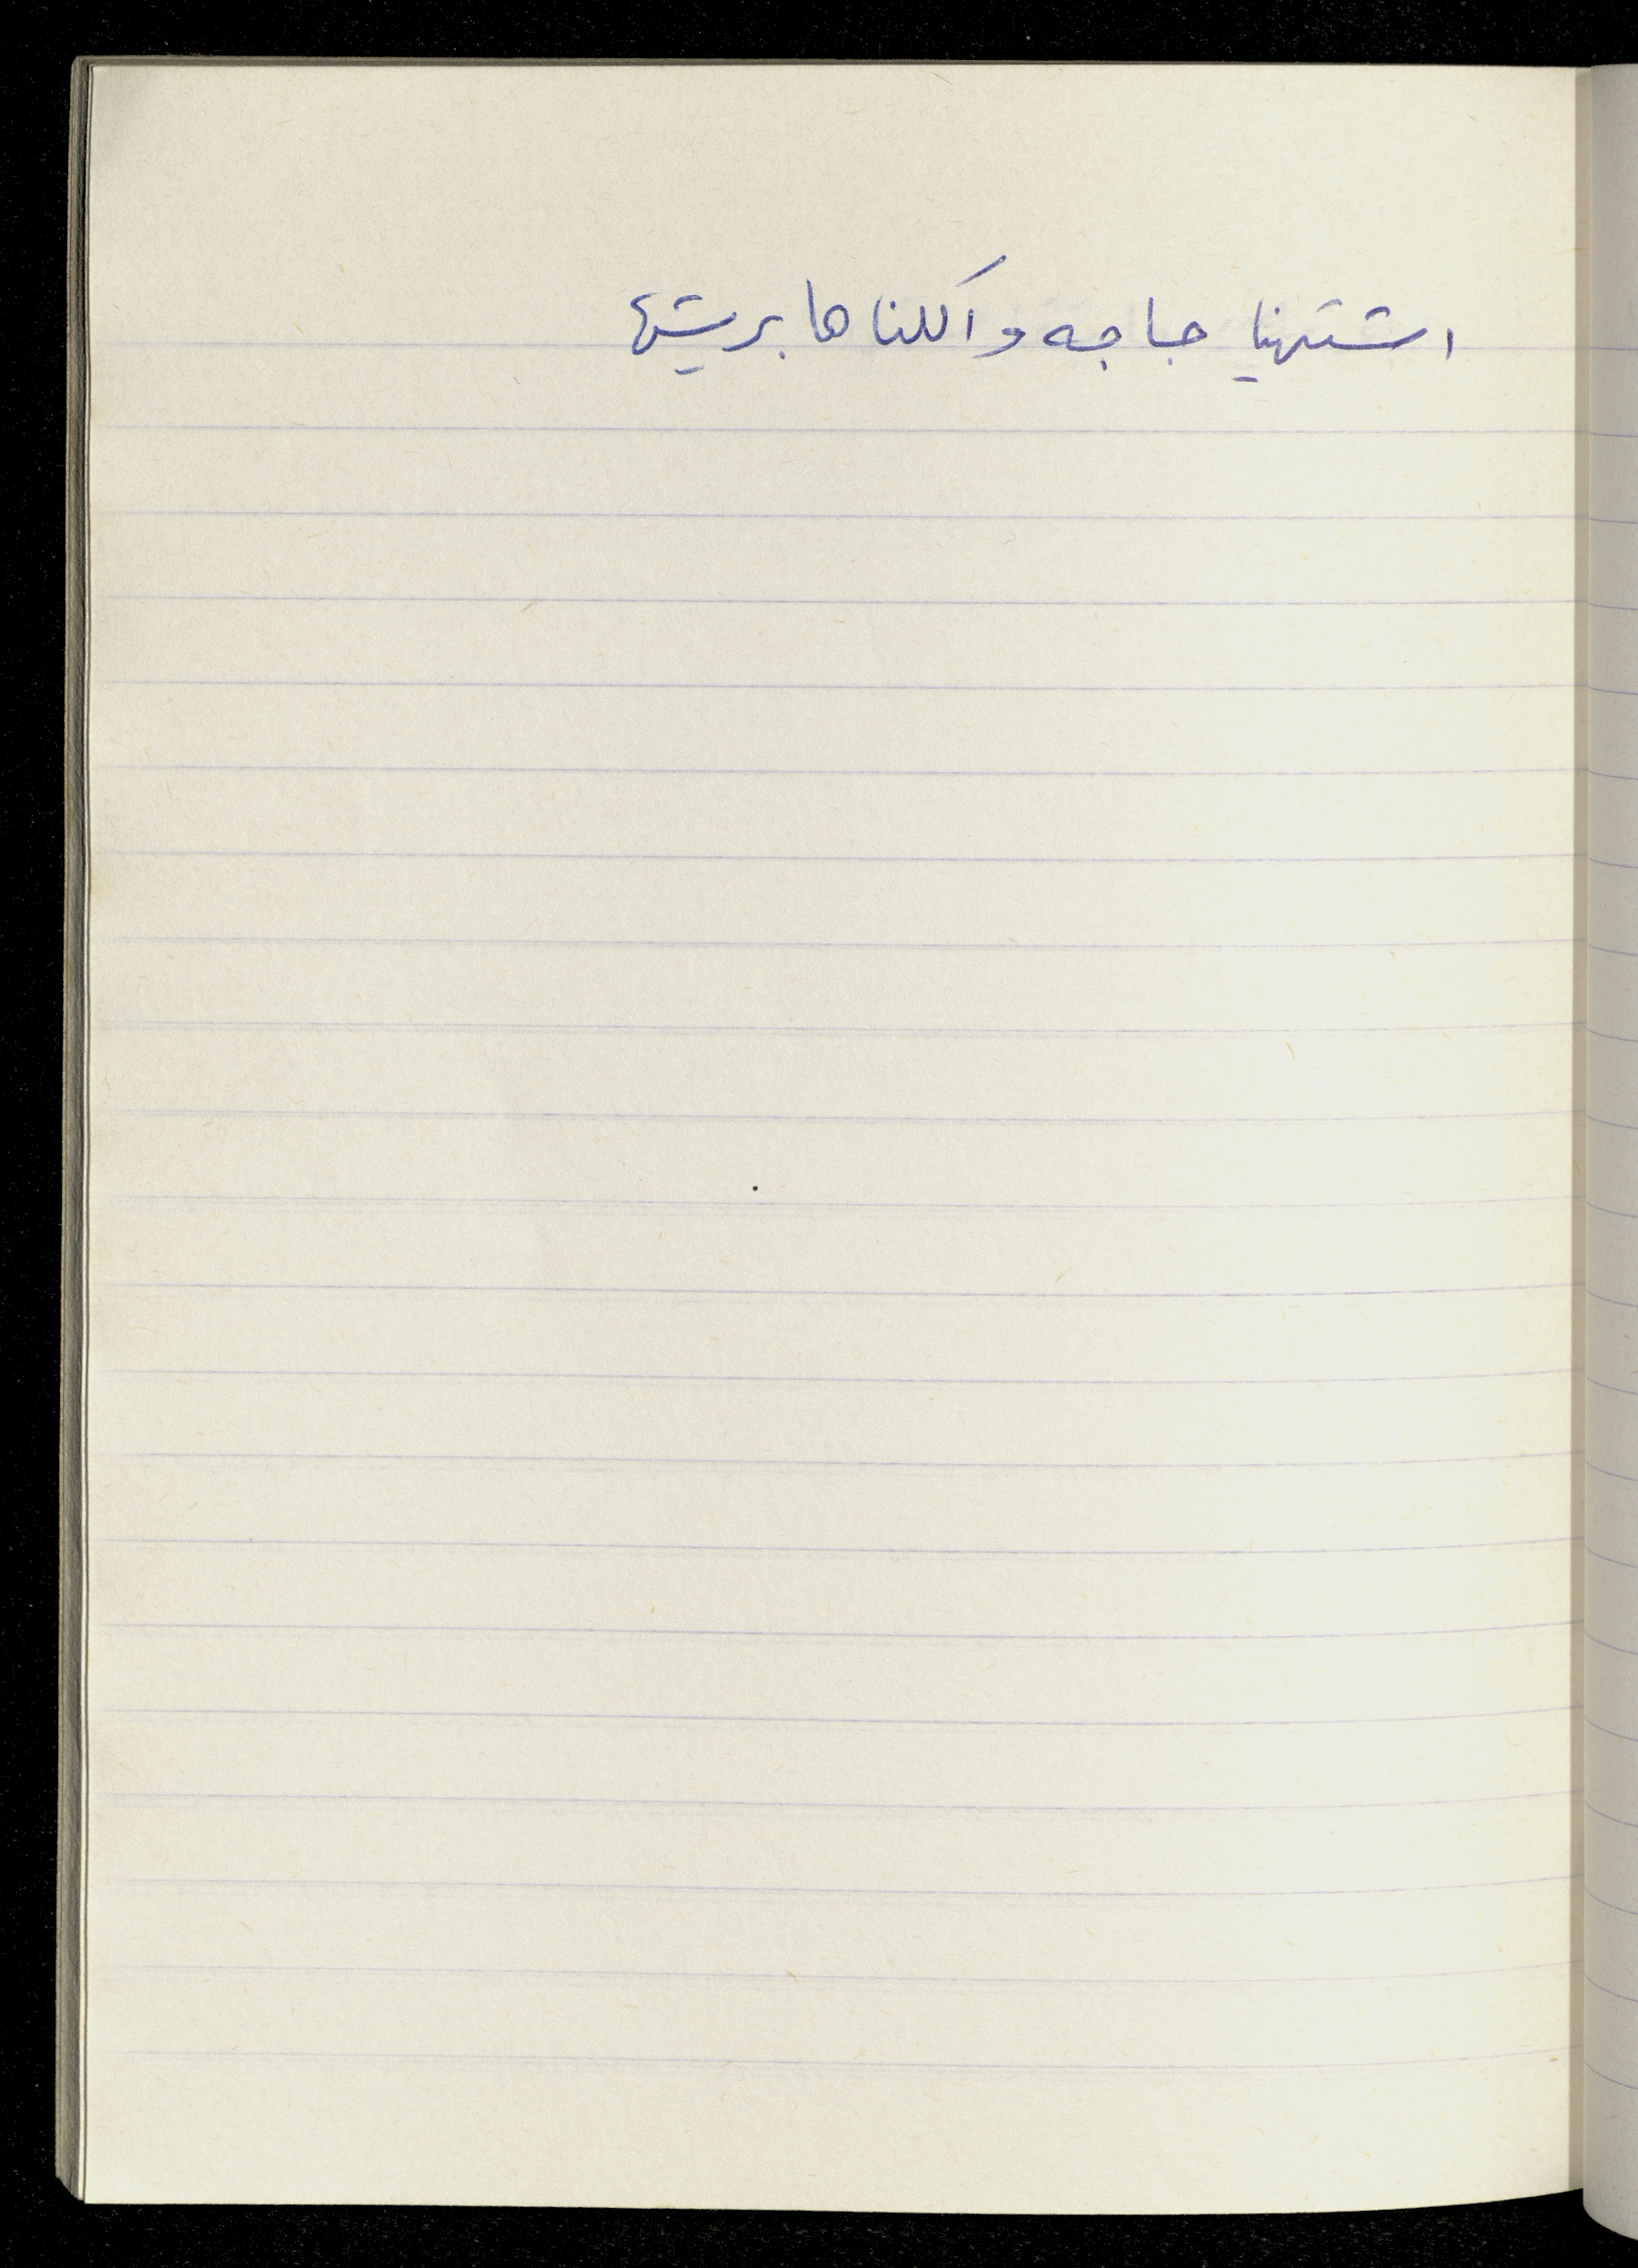 اشتهينا جاجه واكلناها بريشها